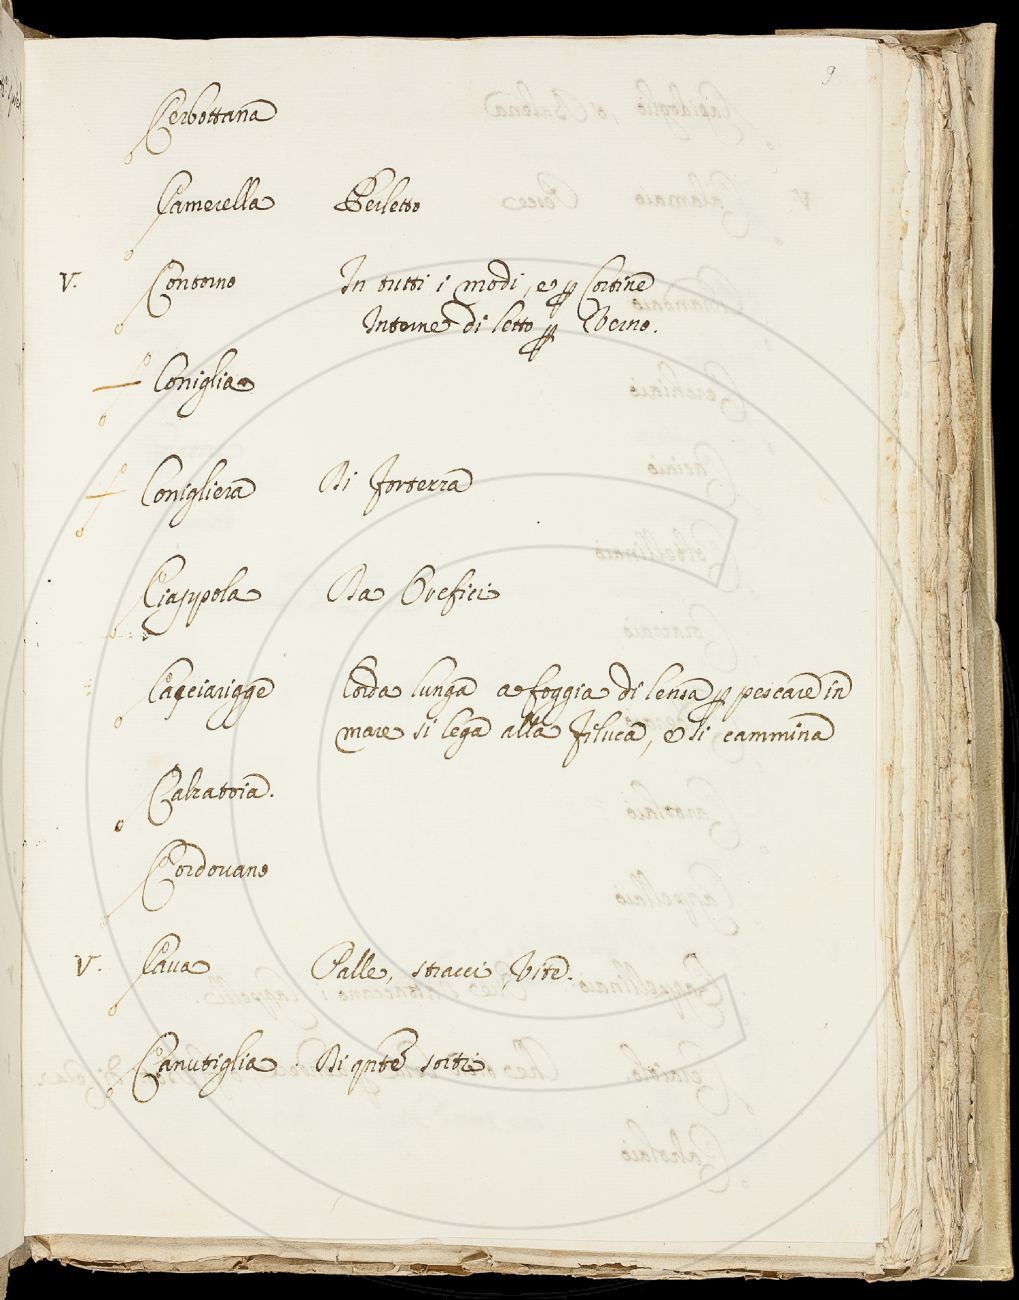 9
Cerbottana
Camerella Per letto
V. Contorno In tutti i modi, e p Cortine
Intorne di letto p Verno.
Coniglia
Conigliera Di
Ciappola Da Orefici
Cacciarigge Corda lunga a foggia di lensa p pescare in
mare si lega alla filuca, e si cammina
Calzattoia.
Cordovano
V. Cava Palle, stracci, vite.
Canutiglia Di qnte sorti